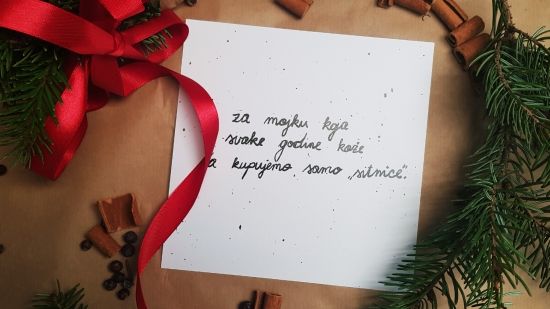 za mojku koja
svake godine kaže
a kupujemo samo „sitnice“.